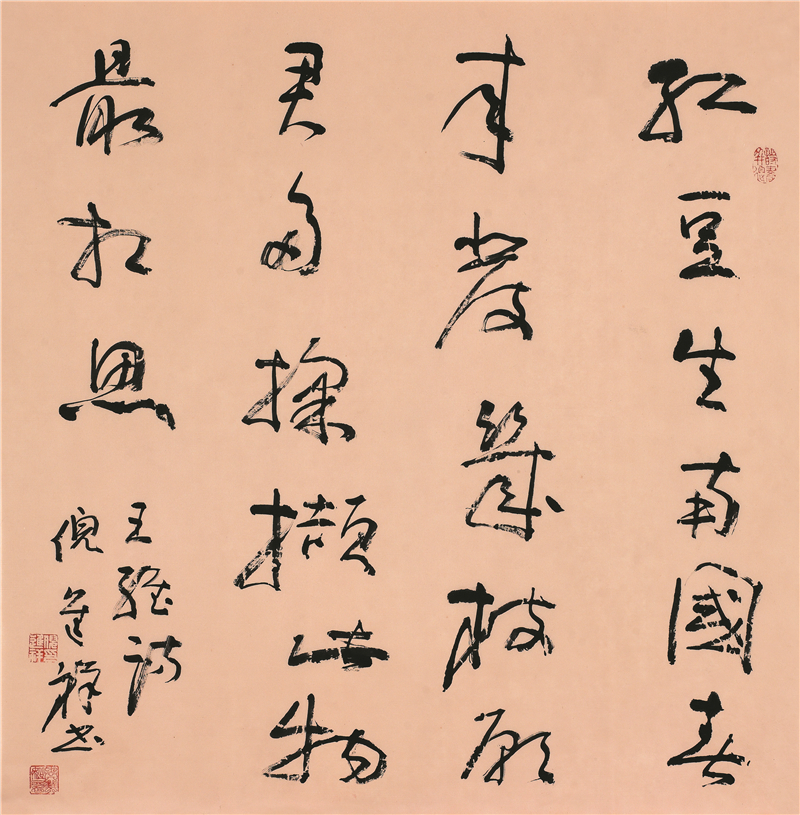 紅豆生南國春
來發幾枝願
君多採擷此物
最相思
王維詩
倪進祥書